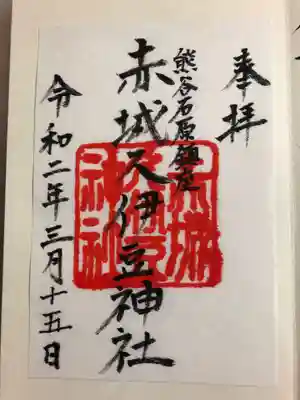 奉拝
熊谷石原鎮座
赤城久伊豆神社
令和二年三月十五日
赤城
久伊豆
神社